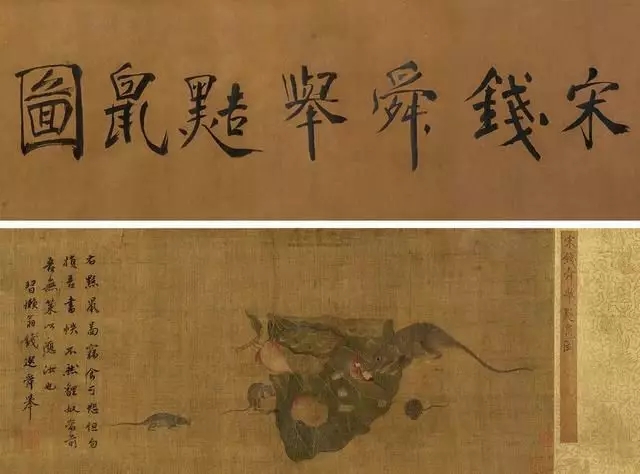 宋錢舜舉黠鼠圖
宋錢舜舉黠鼠圖
右黠鼠啚竊食可恕但勿
損吾書帙不然貍奴當前
吾無策以應汝也
習懶翁錢選舜舉